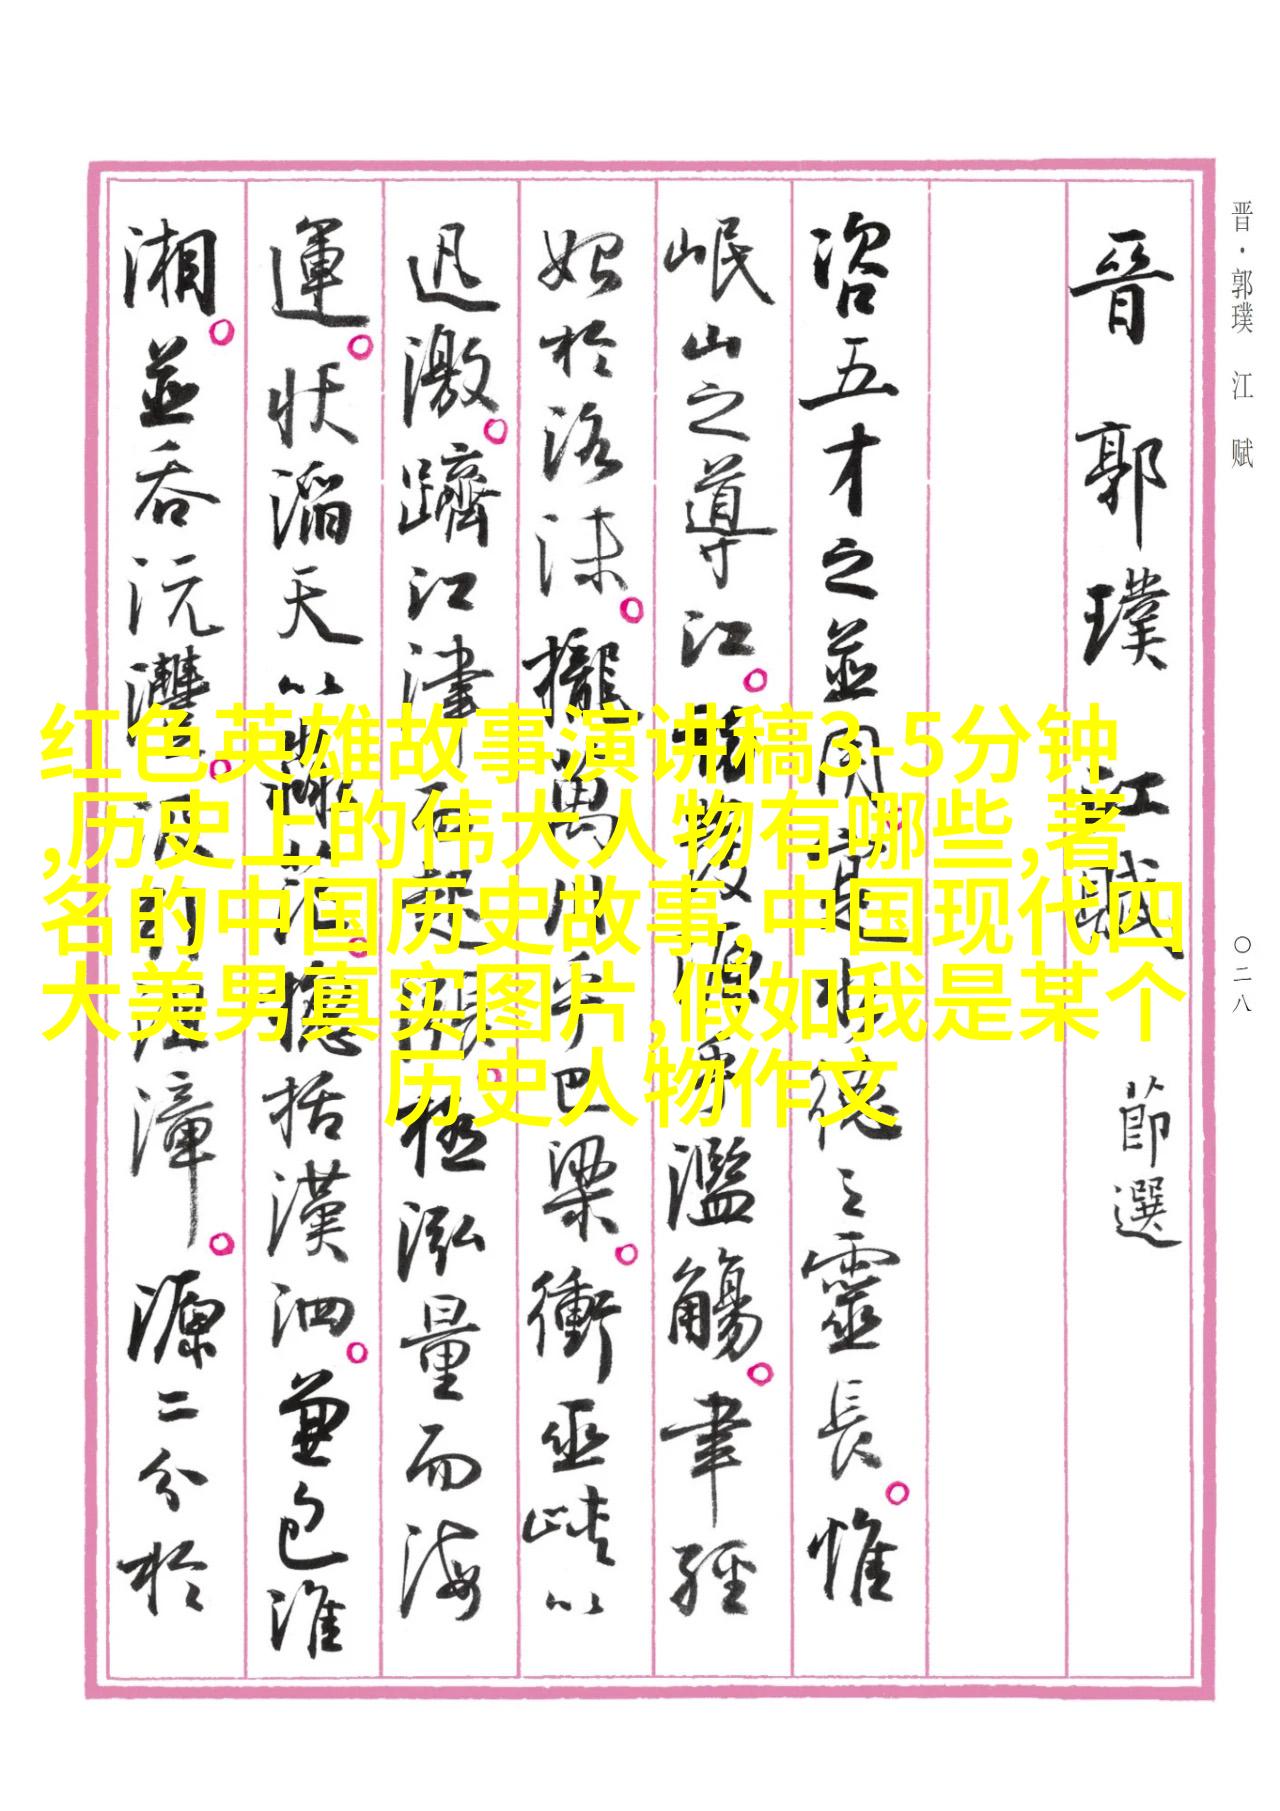 晋·郭璞 江 赋
〇二八
晉 郭璞 江賦 節選
咨五才之並用。寔水德之靈長。惟
岷山之導江。初發源乎濫觴。聿經
始於洛沫。攏萬川乎巴梁。衝巫峽以
迅激。躋江津而起漲。極泓量而海
運。狀滔天以淼茫。總括漢泗。兼包淮
湘。並吞沅灃。汲引沮漳。源二分於
红色英雄故事演讲稿3-5分钟
,历史上的伟大人物有哪些,著
名的中国历史故事,中国现代四
大美男真实图片,假如我是某个
历史人物作文